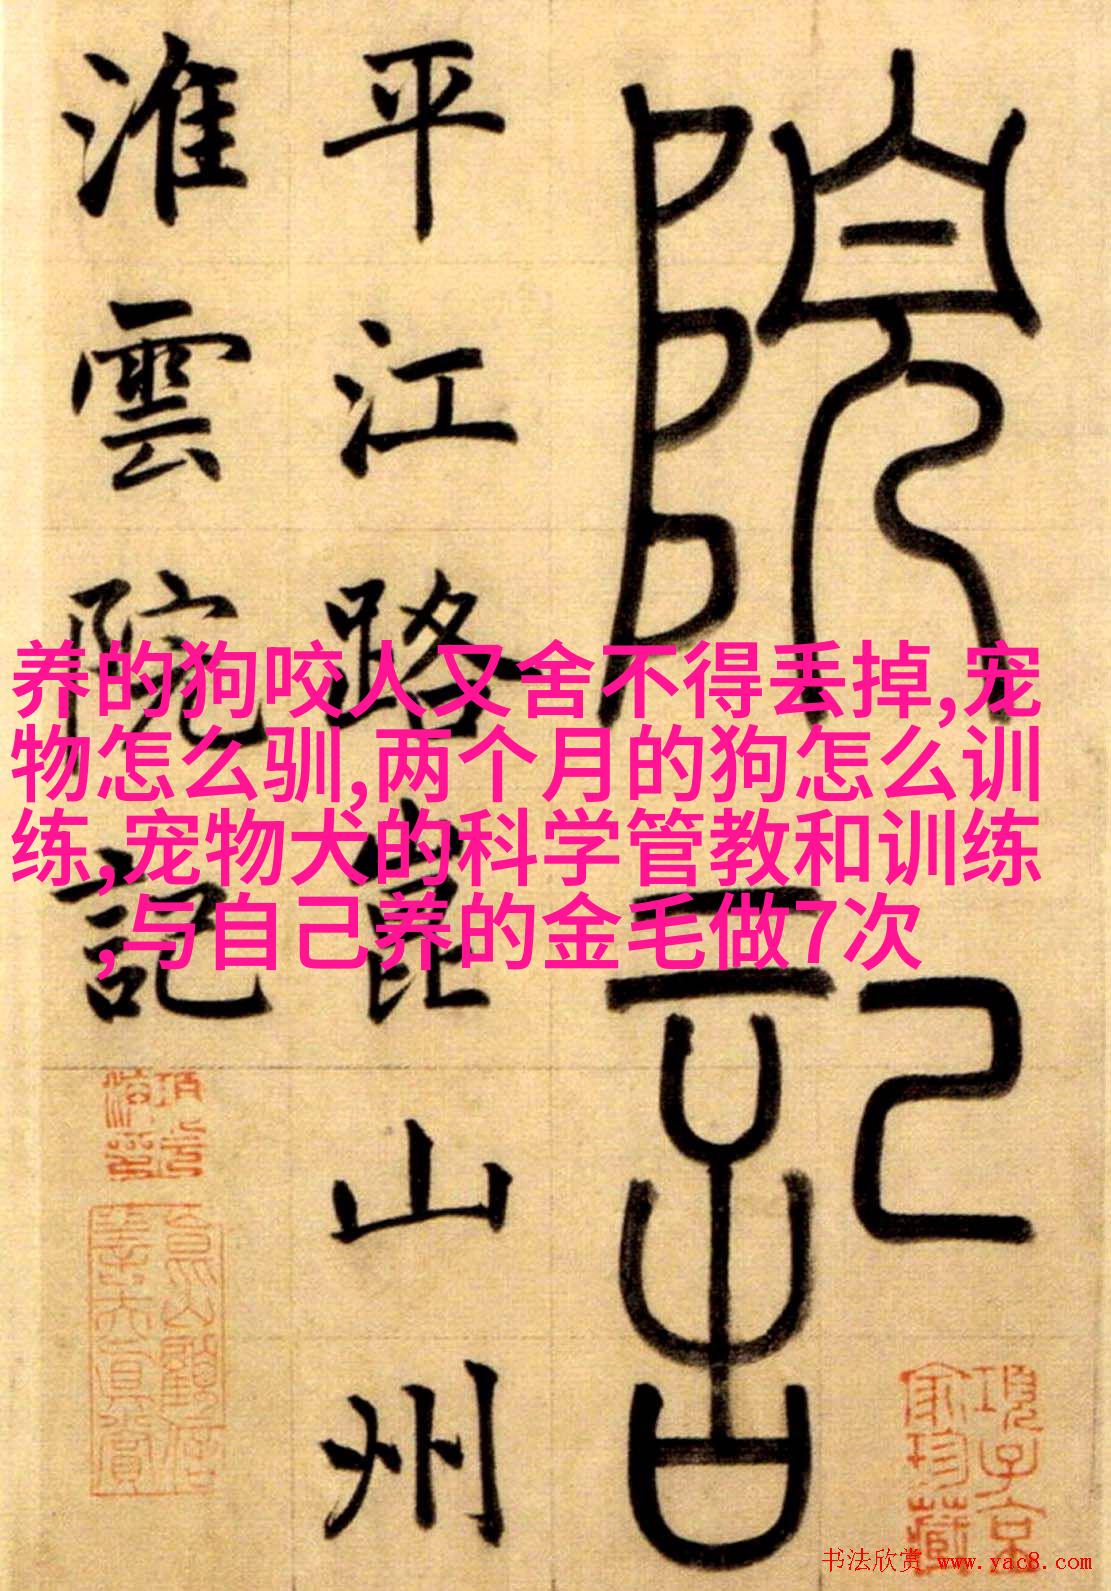 院記
平江路崑山州
淮雲院記
养的狗咬人又舍不得丢掉,宠
物怎么驯,两个月的狗怎么训
练,宠物犬的科学管教和训练
,与自己养的金毛做7次
項子京
家珍藏
书法欣赏 www.yac8.com